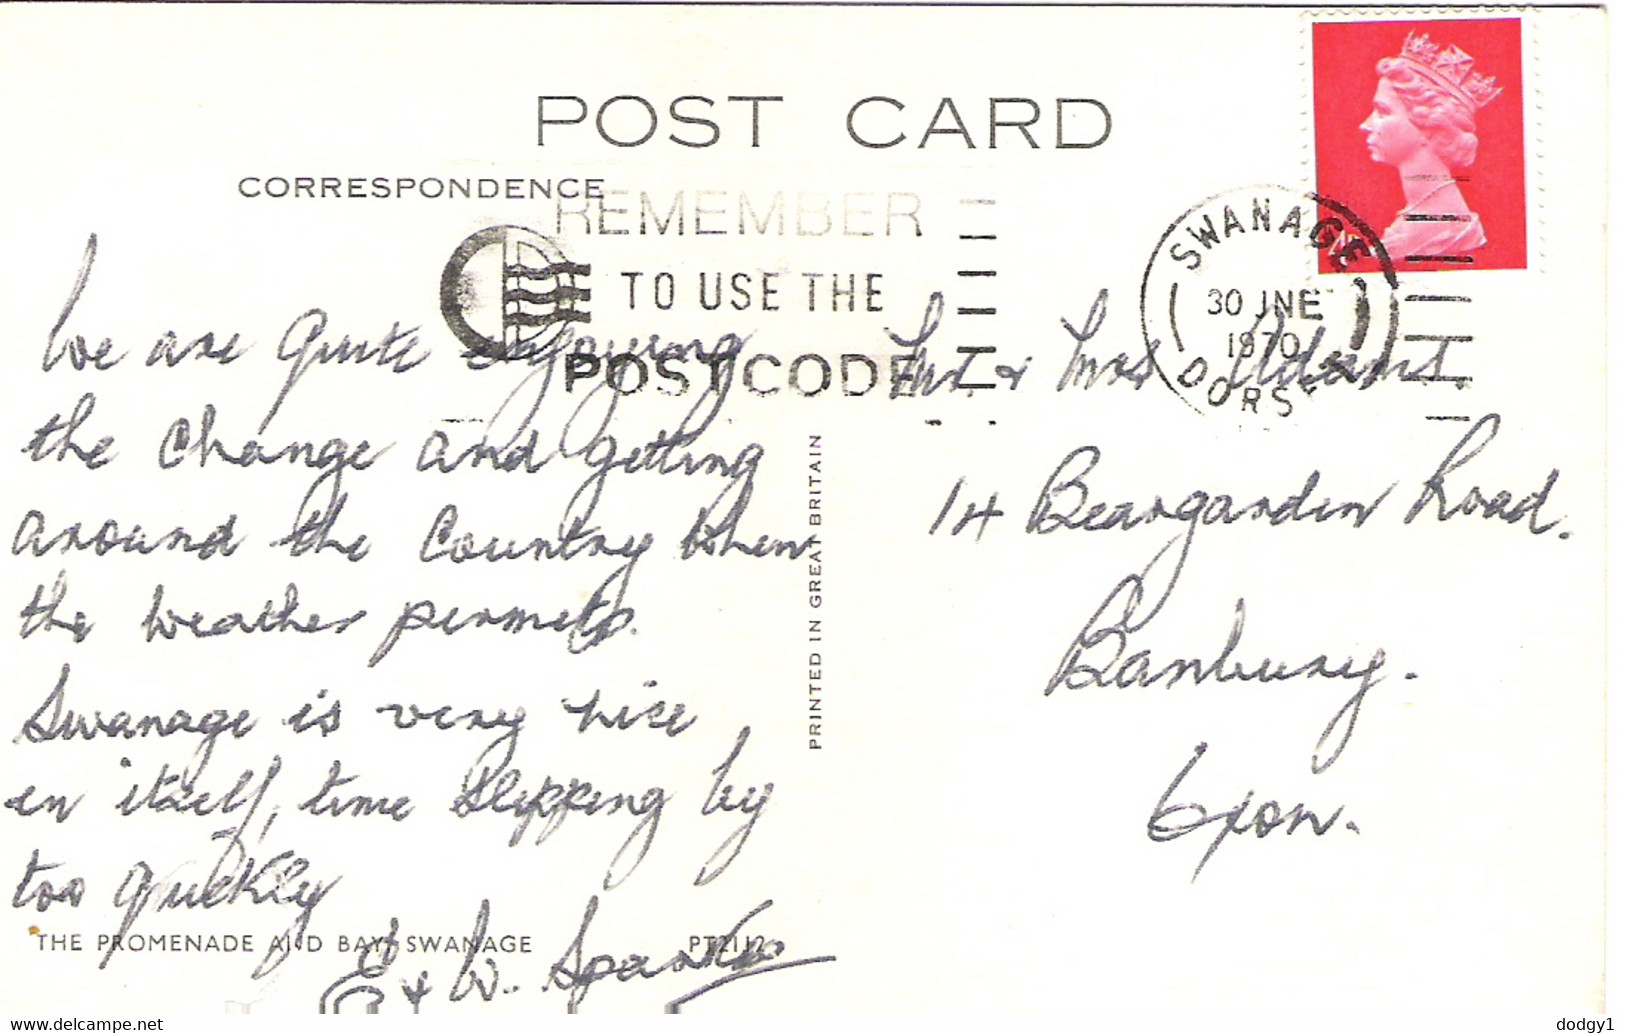 POST CARD
CORRESPONDENCE
REMEMBER
TO USE THE
POSTCODE
SWANAGE
30 JNE
1970
DORSET
We are quite enjoying
the change and getting
around the Country when
the weather permits.
Swanage is very nice
in itself, time slipping by
too quickly
& W. Sparks
Mr & Mrs Adams.
14 Beargarden Road.
Banbury.
Oxon.
PRINTED IN GREAT BRITAIN
THE PROMENADE AND BAY, SWANAGE
PT21112
delcampe.net
dodgy1